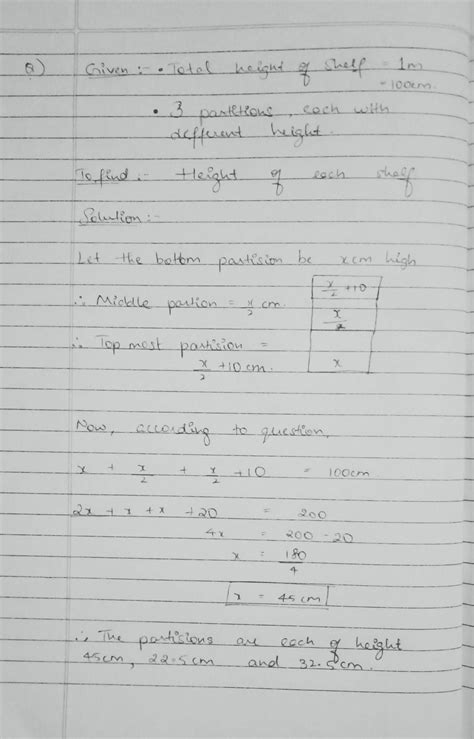 Q) Given :- • Total height of shelf = 1m
= 100cm.
• 3 partitions, each with
different height.
To find :- Height of each shelf
Solution :-
Let the bottom partision be x cm high
∴ Middle partion = x/2 cm.
x/2 + 10
x/2
x
∴ Top most partision =
x/2 + 10 cm.
Now, according to question,
x + x/2 + x/2 + 10 = 100cm
2x + x + x + 20 = 200
4x = 200 - 20
x = 180/4
x = 45 cm
∴ The partisions are each of height
45cm, 22.5cm and 32.5cm.